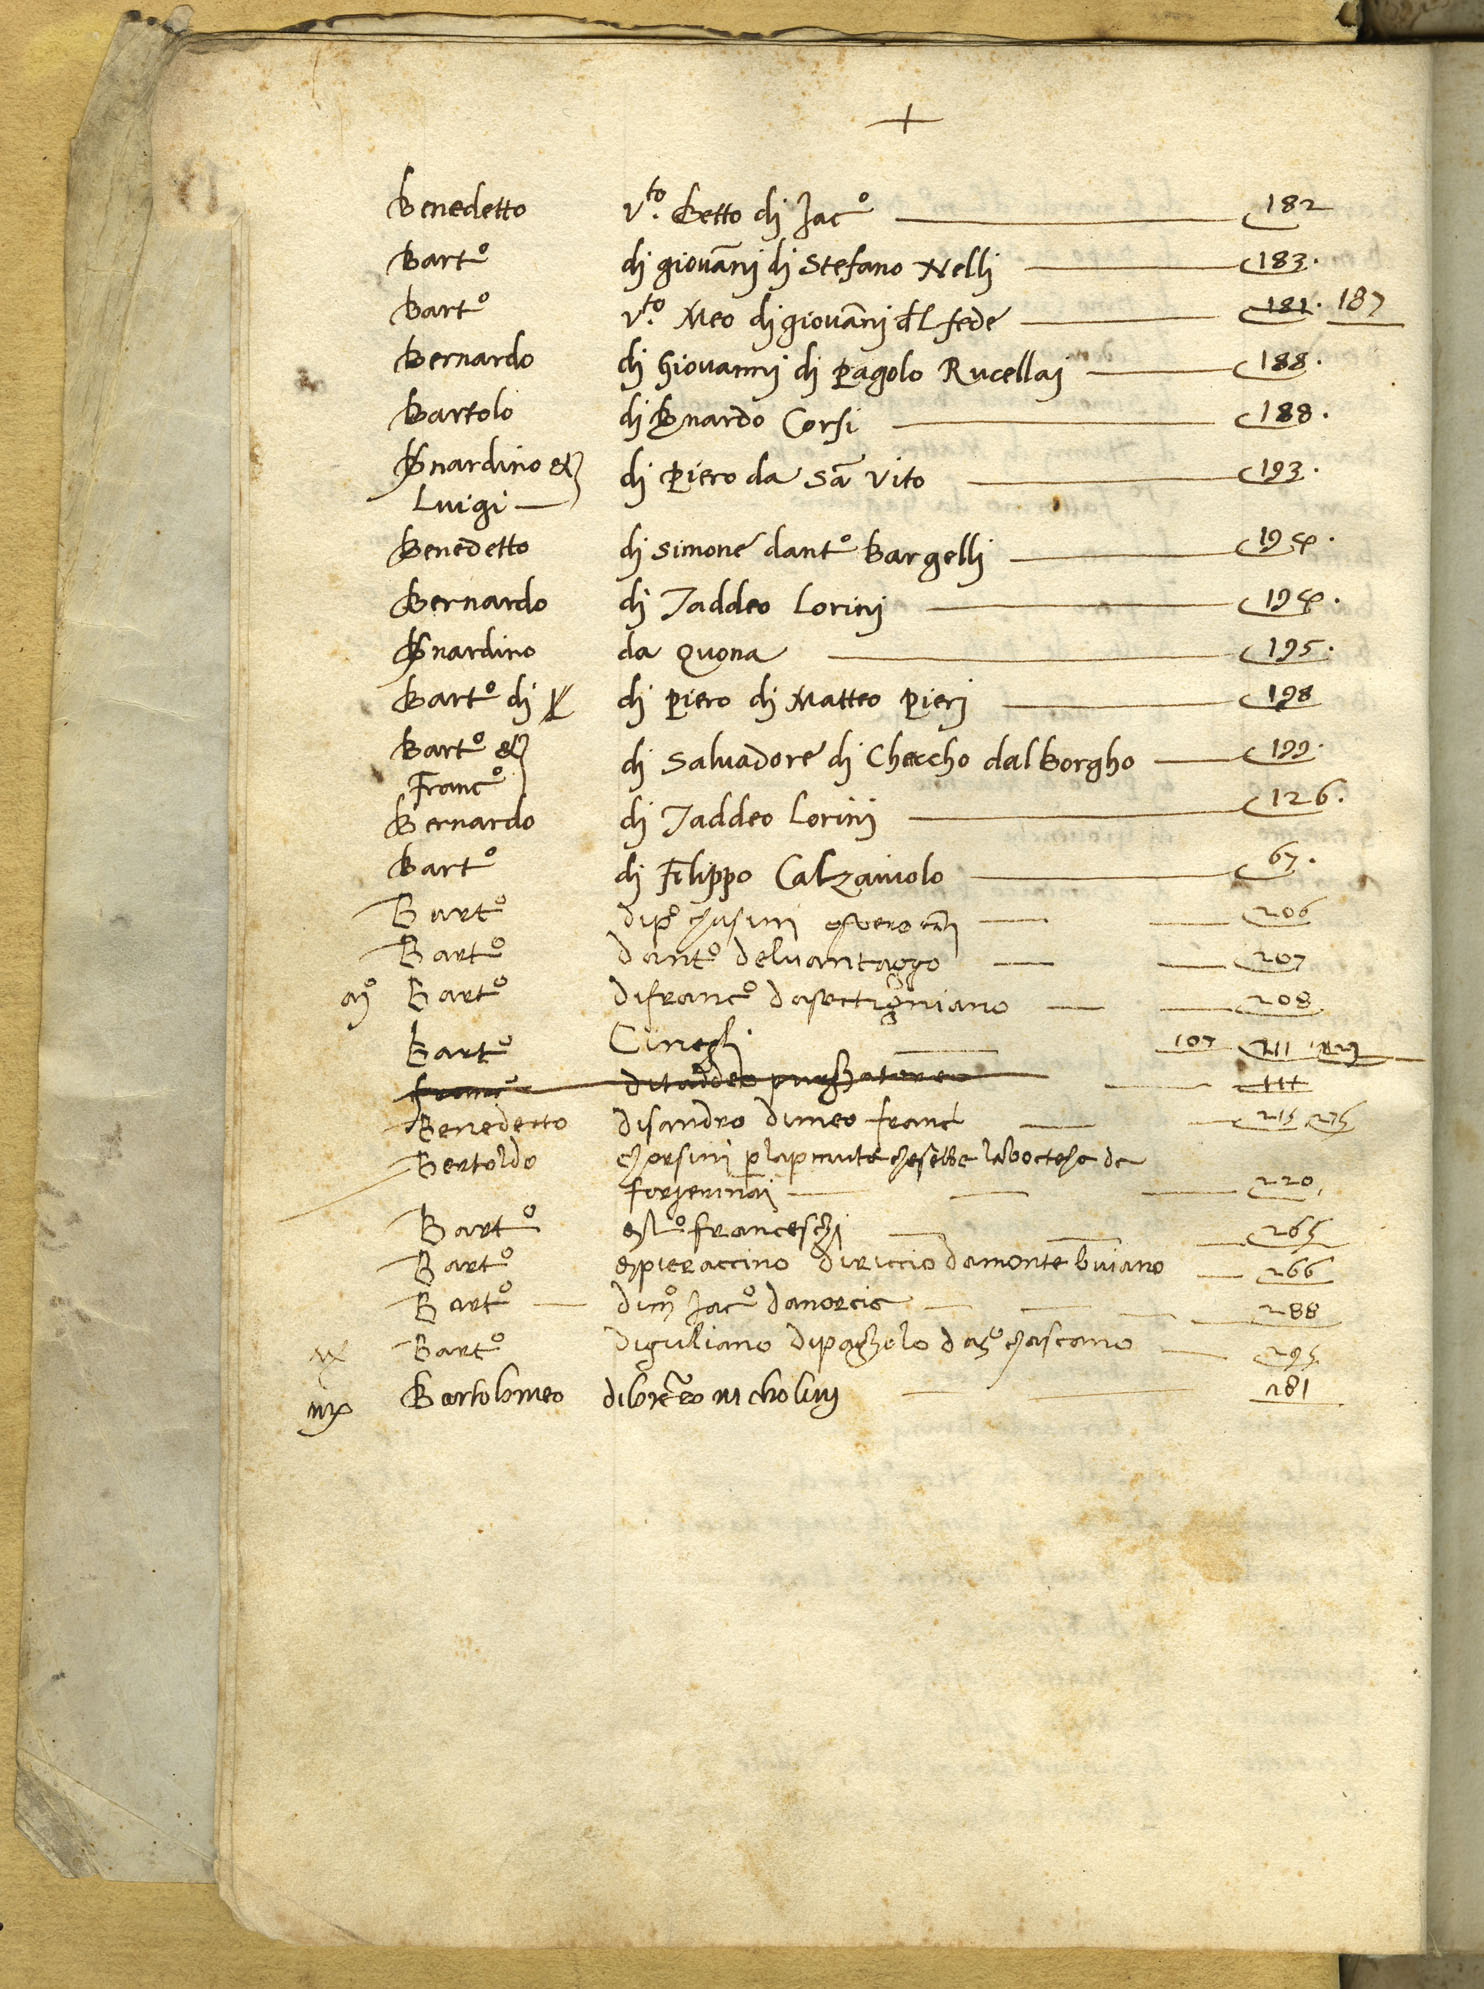 +
Benedetto v.to Betto di Jac° 182
Bart° di giova͞ni di Stefano Nelli 183.
Bart° v.to Meo di giova͞ni d͞l fede 181. 187
Bernardo di Giovanni di pagolo Rucellai 188.
Bartolo di B͞nardo Corsi 188.
B͞nardino &
Luigi di Piero da Sa͞ Vito 193.
Benedetto di Simone dant° Bargelli 194.
Bernardo di Taddeo Lorini 194.
B͞nardino da Quona 195.
Bart° di di Piero di Matteo Pieri 198
Bart° &
Franc° di Salvadore di Checcho dal Borgho 199.
Bernardo di Taddeo Lorini 126.
Bart° di Filippo Calzaiuolo 67.
Bart° dip° 206
Bart° dant° delvantaggio 207
Bart° difranc° dasectigniano 208
Bart° Cinegli 107 211
franc° ditaddeo purghatore
Benedetto disandro dimeo 215 275
Bertoldo chorsini
220
Bart° franceschi 265
Bart° pieraccino diriccio damonte 266
Bart° dim° Jac° danorcia 288
Bart° digiuliano dipagholo 295
Bartolomeo nicholini 281